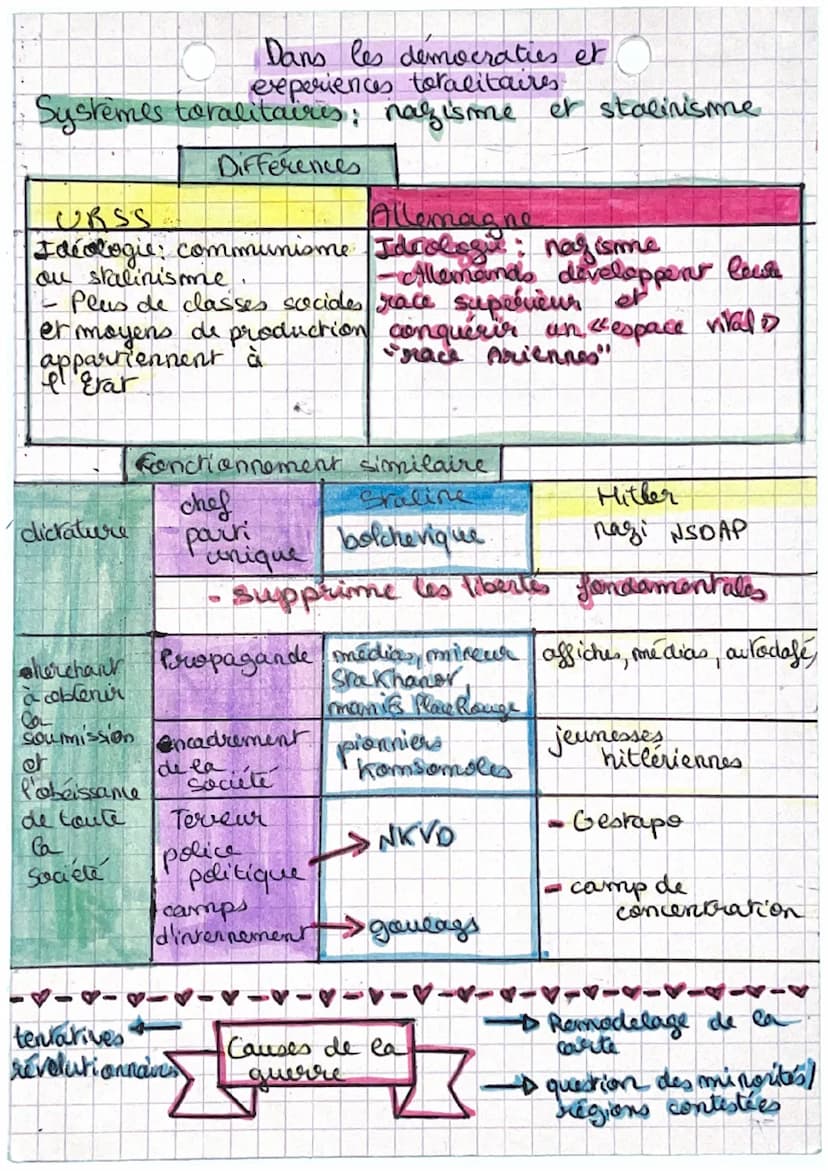 Dans les démocraties et
experiences totalitaires
Systèmes totalitaires : nazisme et stalinisme
Différences
URSS
Idéologie : communisme
ou stalinisme.
- Plus de classes sociales
et moyens de production
appartiennent à
l'État
Allemagne
Idéologie : nazisme
- Allemands développent leur
race supérieur et
conquérir un «espace vital»
"race Ariennes"
Fonctionnement similaire
dictature
chef
parti
unique
Staline
bolchevique
Hitler
nazi NSDAP
- supprime les libertés fondamentales
cherchant
à obtenir
la
soumission
et
l'obéissance
de toute
la
société
Propagande
médias, mineur
Stakhanov,
manifs Place Rouge
affiches, médias, autodafé,
encadrement
de la
société
pionniers
Komsomoles
jeunesses
hitlériennes
Terreur
police
politique
camps
d'internement
NKVD
goulags
- Gestapo
- camp de
concentration
tentatives
révolutionnaires
Causes de la
guerre
Remodelage de la
carte
question des minorités/
régions contestées